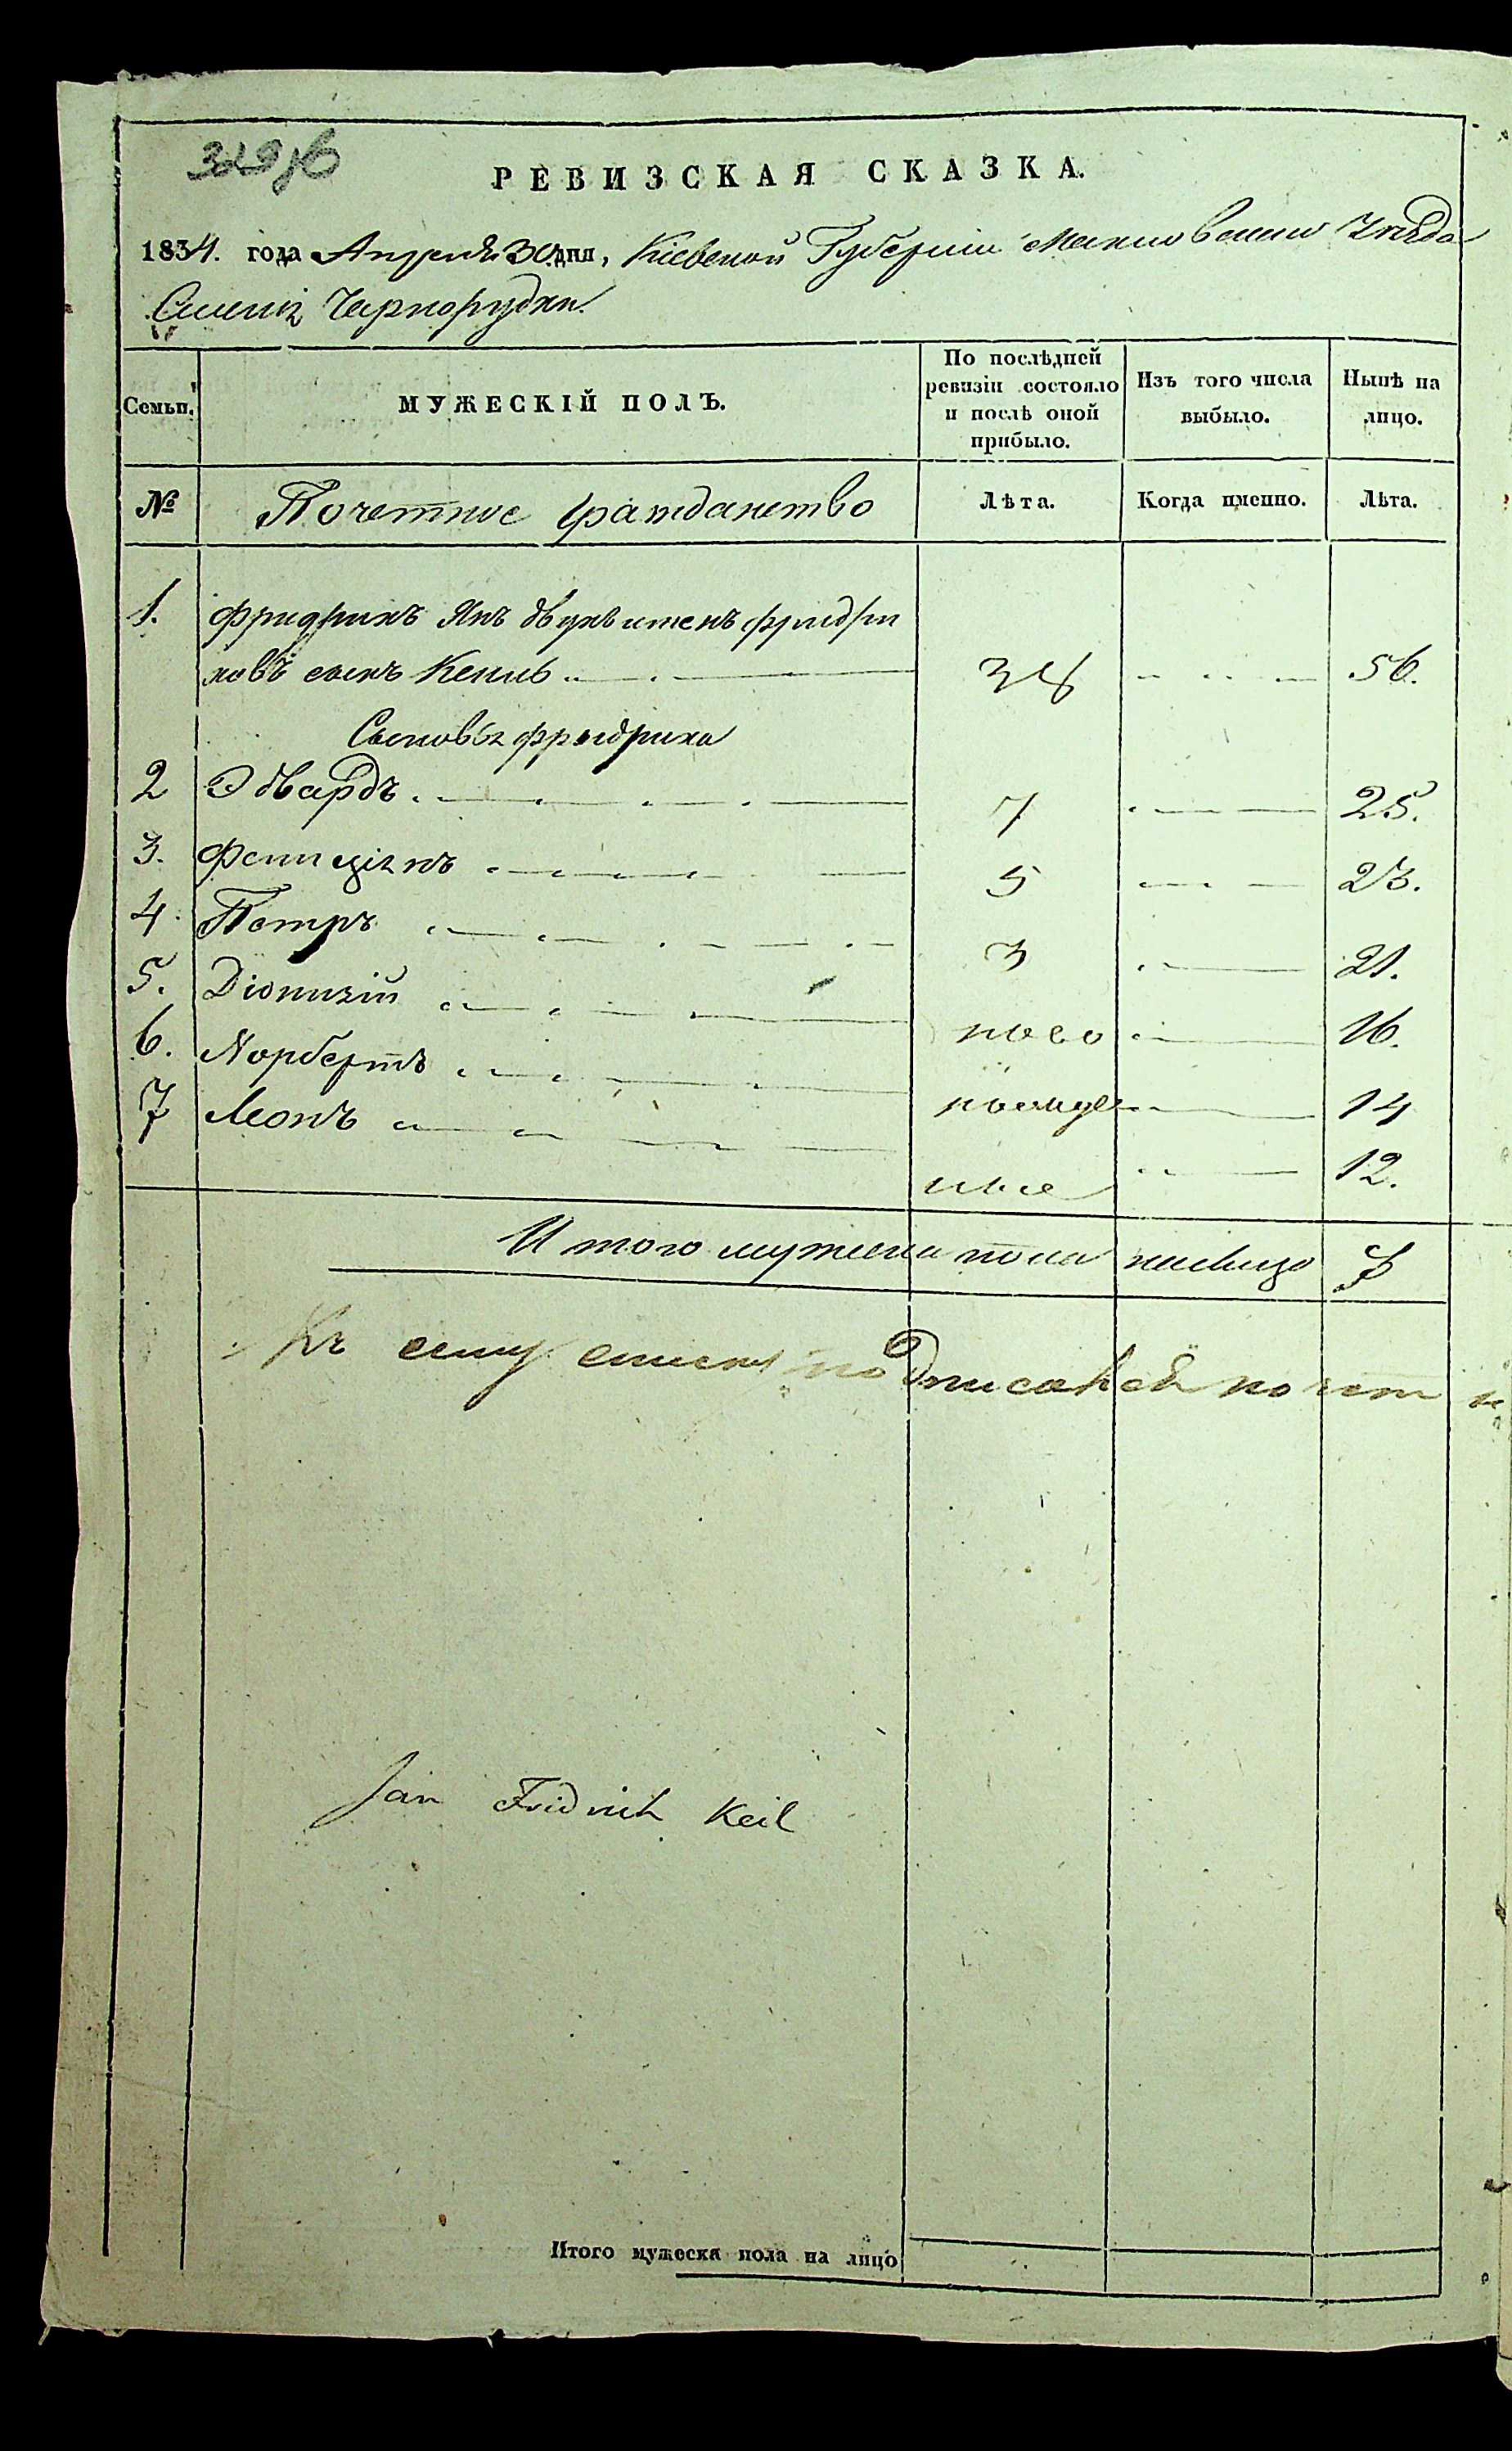 РЕВИЗСКАЯ СКАЗКА.
1834. года Апреля 30 дня, Кіевской Губерніи Махновскаго Уѣзда
Селенія Чернорудки.
Семьи.
МУЖЕСКІЙ ПОЛЪ.
По послѣдней ревизіи состояло и послѣ оной прибыло.
Изъ того числа выбыло.
Нынѣ на лицо.
№
Почетное гражданство
Лѣта.
Когда именно.
Лѣта.
1. Фридрихъ Янъ двухъ именъ Фридри
ховъ сынъ Кейль 38 56.
Сыновья Фридриха
2 Эдвардъ 7 25.
3. Фелиціянъ 5 23.
4 Петръ 3 21.
5. Діонизій ново 16.
6. Норбертъ рожде 14
7 Леонъ ные 12.
Итого мужеска пола налицо 7
Къ сему списку подписался почетн
Jan Fridrich Keil
Итого мужеска пола на лицо